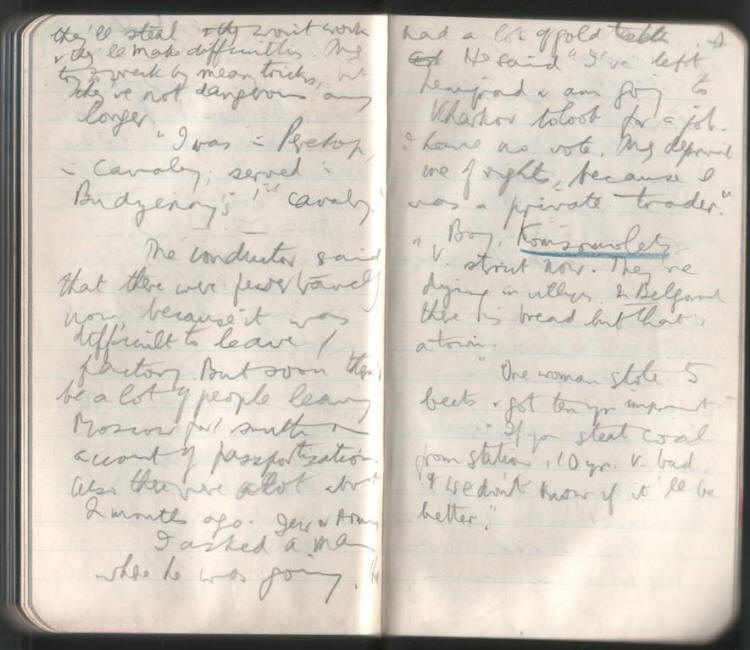 they'll steal & they won't work
& they'll make difficulties. They
try to wreck by mean tricks, but
they're not dangerous any
longer.
"I was in Perekop,
in Cavalry; served in
Budyenny's 1st cavalry."
The conductor said
that there were fewer travels
now because it was
difficult to leave /
factory. But soon there'll
be a lot of people leaving
Moscow for south on
account of passportization.
Also there were a lot about
2 months ago. Few in Army
I asked a man
where he was going. He
had a lot of gold teeth
He said "I've left
& am going to
Kharkov to look for a job.
I have no vote. They deprived
me of rights, because I
was a private trader."
" Boy, Komsomolets
V. strict now. They're
dying in villages. In Belgorod
there is bread but that's
a town.
" One woman stole 5
beets & got ten yr imprisonment
" If you steal coal
from station, 10 yr. V. bad.
& we don't know if it'll be
better."